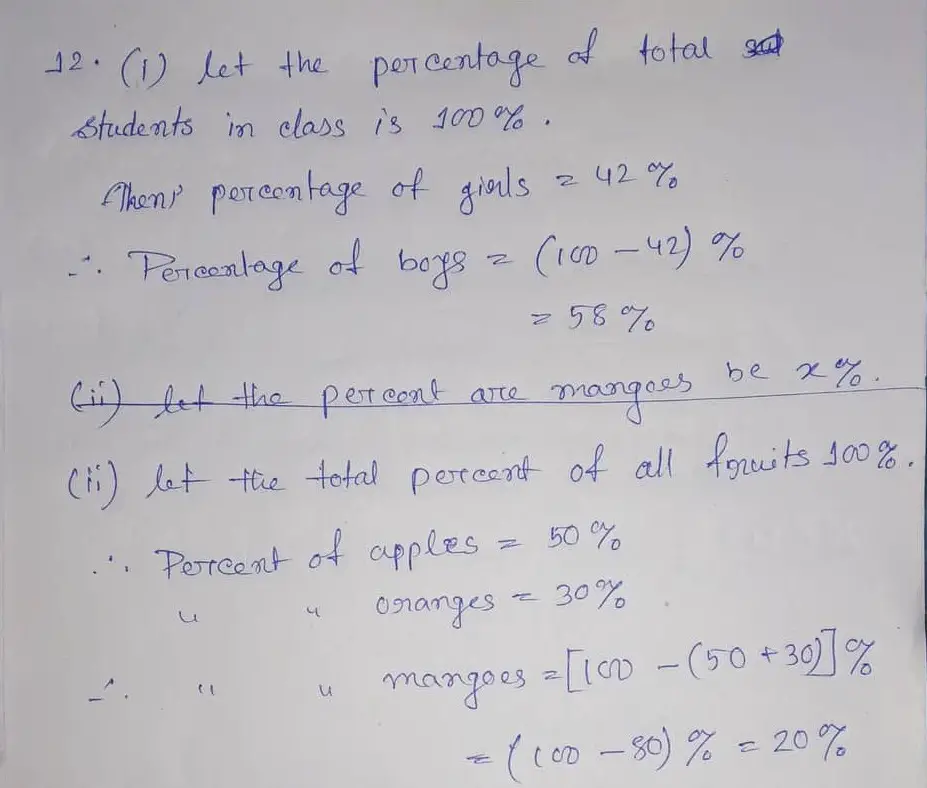 12. (i) let the percentage of total
students in class is 100%.
Then, percentage of girls = 42%
∴ Percentage of boys = (100 - 42) %
= 58 %
(ii) let the percent are mangoes be x%.
(ii) let the total percent of all fruits 100%.
∴ Percent of apples = 50 %
" " oranges = 30%
∴ " " mangoes = [100 - (50 + 30)] %
= (100 - 80) % = 20 %